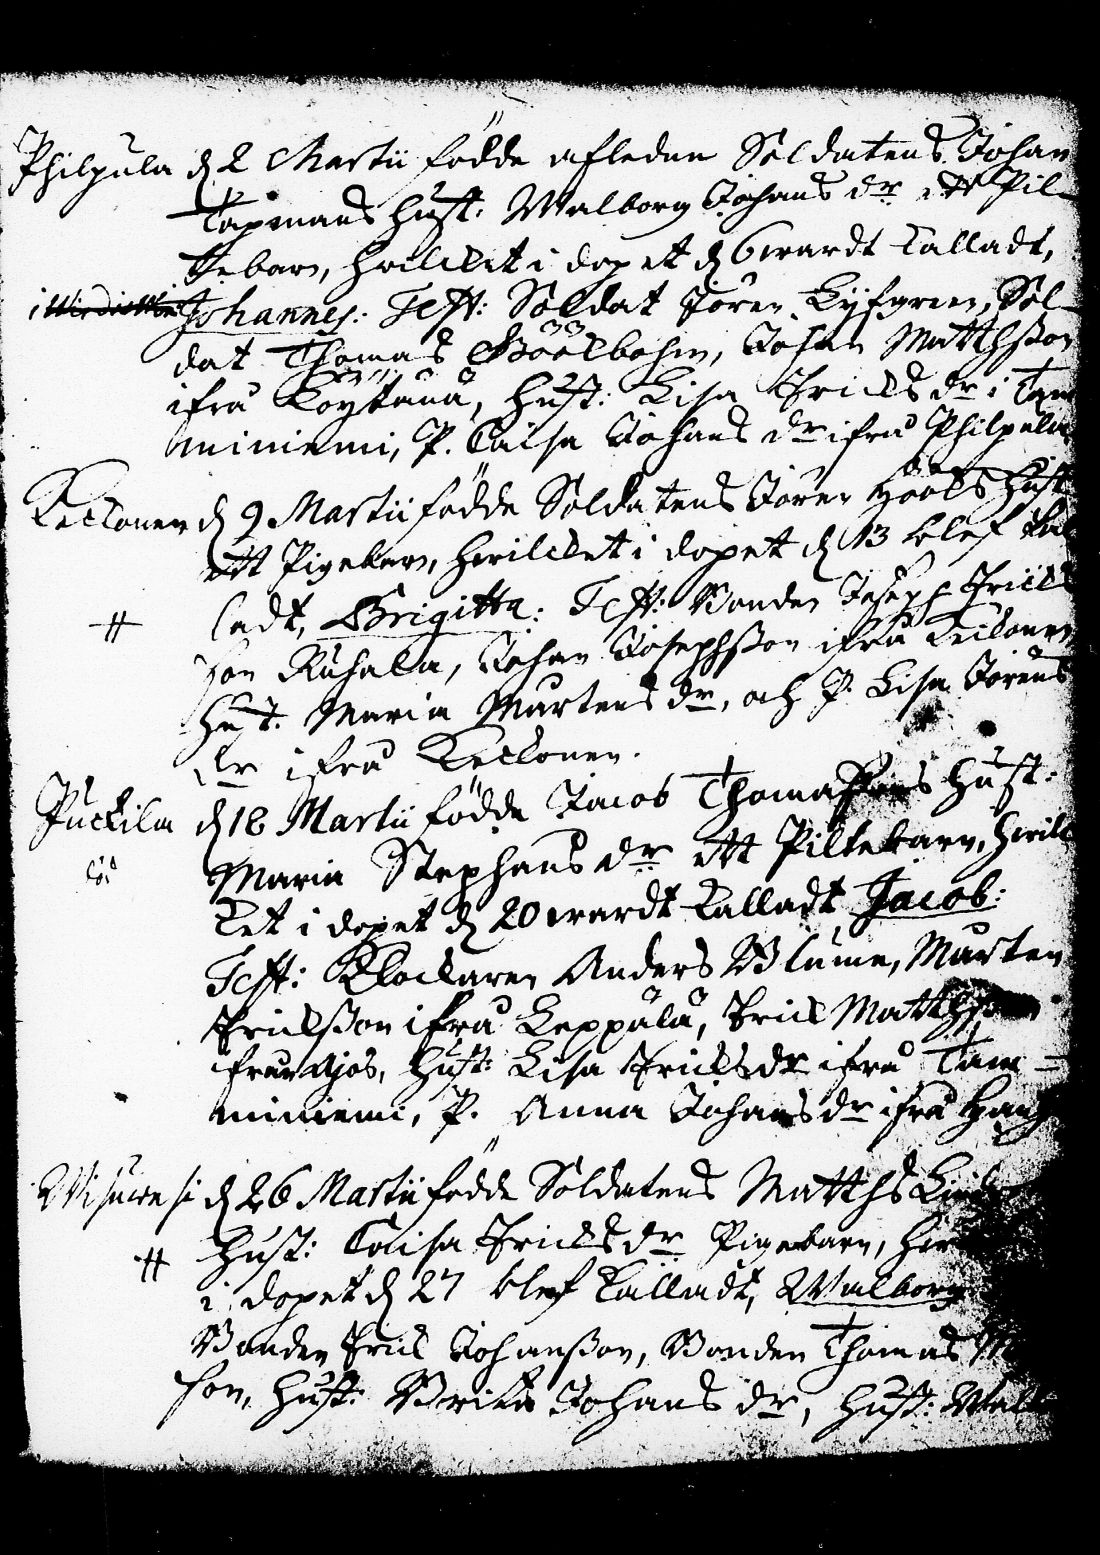 Philpula d 2 Martii födde afledne Soldatens Johan
Tapmans Hust: Walborg Johans dr ett Pil-
tebarn, hvilcket i dopet d 6 wardt kalladt,
Johannes: Test: Soldat Jören Lyfgreen, Sol-
dat Thomas Böölbohm, Johan Matthsson
ifrå Koytana, Hust: Lisa Ericks dr i Tam
miniemi, P. Caisa Johans dr ifrå Philpula
Keckonen d 9 Martii födde Soldatens Jören Hööks Hust
ett Pigebarn, hwilcket i dopet d 13 blef kal
ladt, Brigitta: Test: Bonden Joseph Ericks
son Ruhala, Johan Josephsson ifrå Keckonen
Hust. Maria Martens dr, och P. Lisa Jörens
dr ifrå Keckonen.
Puckila d 18 Martii födde Jacob Thomassons Hust:
Maria Stephans dr ett Piltebarn, hwilc
ket i dopet d 20 wardt kalladt Jacob:
Test: Klockaren Anders Blume, Marten
Ericksson ifrå Leppälä, Erick Matthsson
ifrån Ajos, Hust: Lisa Ericksdr ifrå Tam-
miniemi, P. Anna Johans dr ifrå
Wisuwesi d 26 Martii födde Soldatens Matths
Hust: Caisa Ericks dr Pigebarn,
i dopet d 27 blef kalladt, Walborg
Bonden Erick Johansson, Bonden Thomas
son, Hust: Brita Johans dr, Hust: Wal